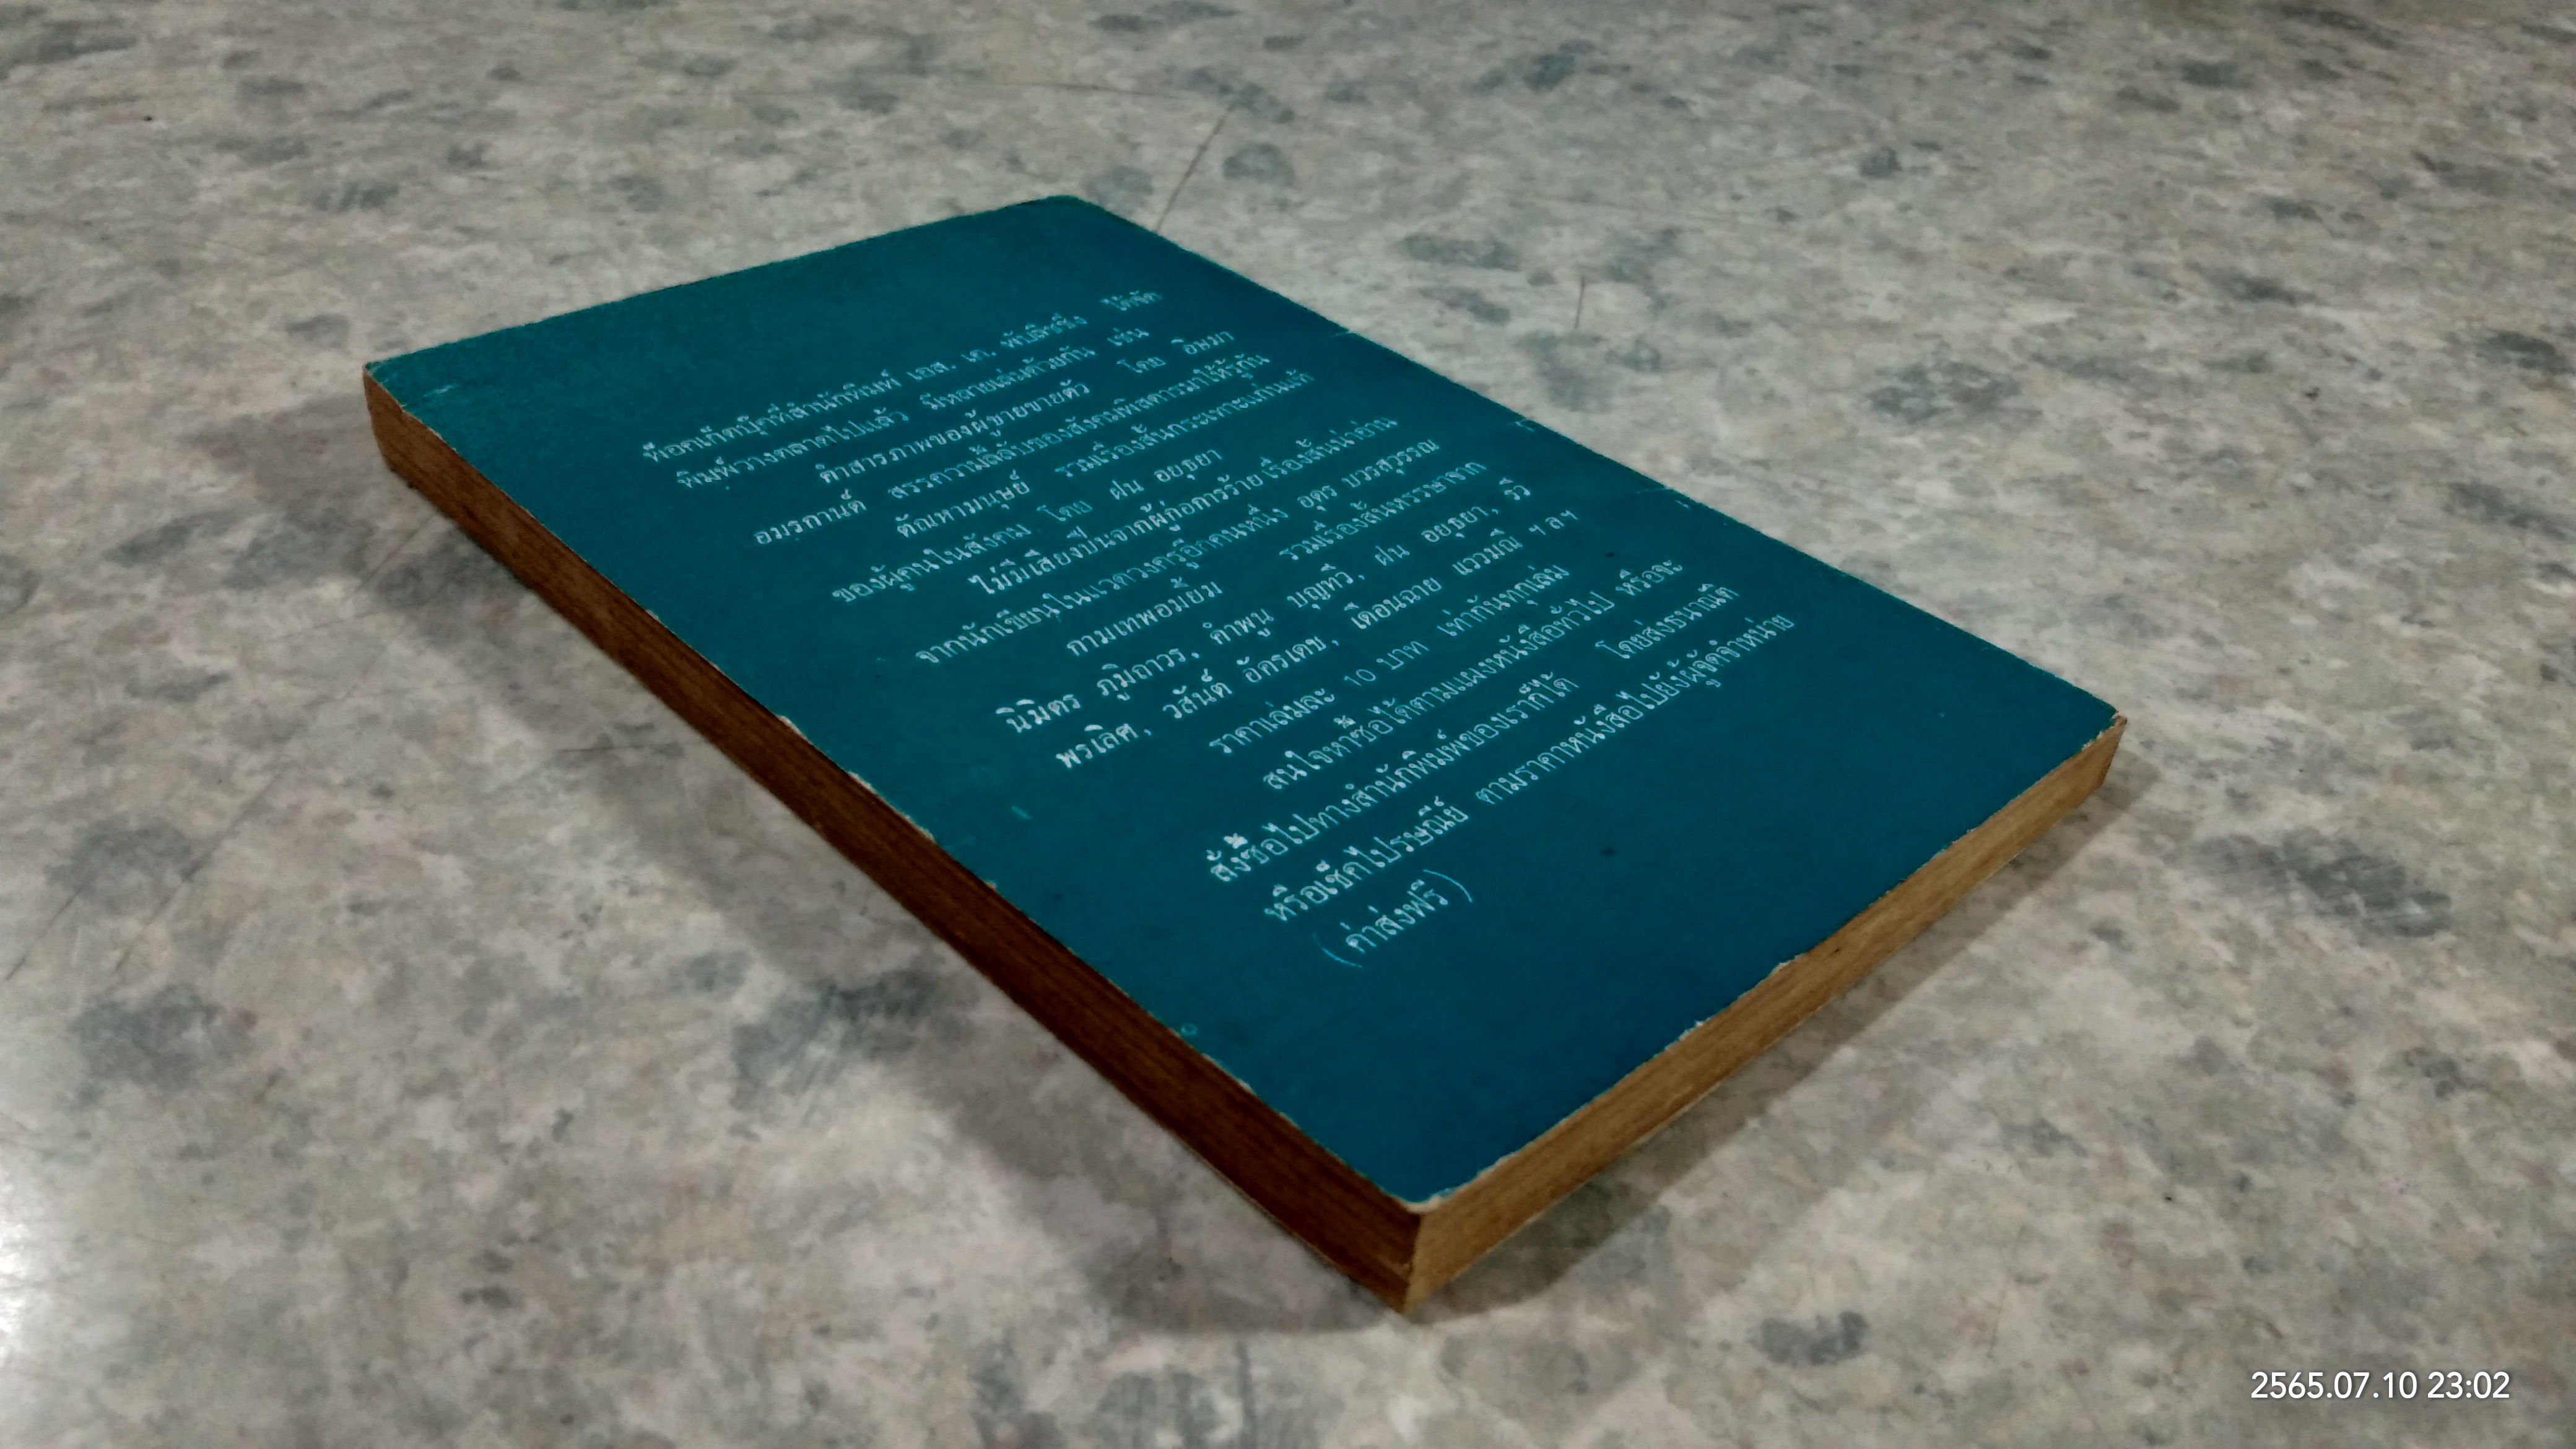 พ็อคเก็ตบุ๊คที่สำนักพิมพ์ เอส. เค. พับลิชชิ่ง ได้จัด
พิมพ์วางตลาดไปแล้ว มีหลายเล่มด้วยกัน เช่น
คำสารภาพของผู้ชายขายตัว โดย อิษมา
อมรกานต์ สรรความลี้ลับของสังคมพิสดารมาให้รู้กัน
ตัณหามนุษย์ รวมเรื่องสั้นกระเทาะแก่นแท้
ของผู้คนในสังคม โดย ฝน อยุธยา
ไม่มีเสียงปืนจากผู้ก่อการร้าย เรื่องสั้นน่าอ่าน
จากนักเขียนในแวดวงครูอีกคนหนึ่ง อุดร บวรสุวรรณ
กามเทพอมยิ้ม รวมเรื่องสั้นหรรษาจาก
นิมิตร ภูมิถาวร, คำพูน บุญทวี, ฝน อยุธยา, รวี
พรเลิศ, วสันต์ อัครเดช, เดือนฉาย แวววมณี ฯลฯ
ราคาเล่มละ 10 บาท เท่ากันทุกเล่ม
สนใจหาซื้อได้ตามแผงหนังสือทั่วไป หรือจะ
สั่งซื้อไปทางสำนักพิมพ์ของเราก็ได้ โดยส่งธนาณัติ
หรือเช็คไปรษณีย์ ตามราคาหนังสือไปยังผู้จัดจำหน่าย
(ค่าส่งฟรี)
2565.07.10 23:02